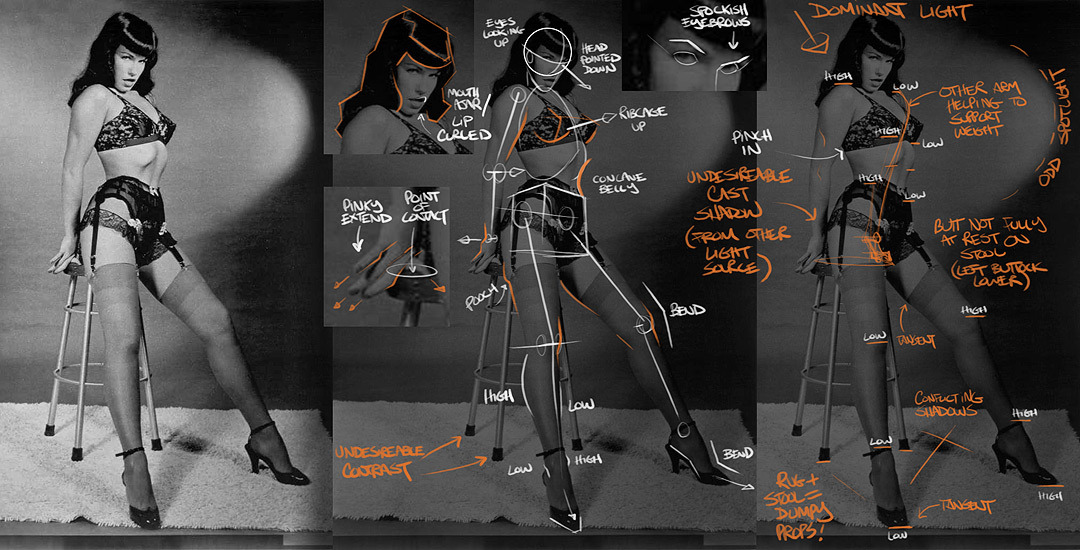 EYES
LOOKING
UP
HEAD
POINTED
DOWN
MOUTH
AJAR
LIP
CURLED
SPOCKISH
EYEBROWS
RIBCAGE
UP
CONCAVE
BELLY
PINKY
EXTEND
POINT
OF
CONTACT
POOCH
BEND
HIGH
LOW
LOW
HIGH
BEND
UNDESIREABLE
CONTRAST
DOMINANT LIGHT
HIGH
LOW
OTHER ARM
HELPING TO
SUPPORT
WEIGHT
ODD
SPOTLIGHT
PINCH
IN
HIGH
LOW
HIGH
LOW
UNDESIREABLE
CAST
SHADOW
(FROM OTHER
LIGHT
SOURCE)
BUT NOT FULLY
AT REST ON
STOOL
(LEFT BUTTOCK
LOWER)
HIGH
LOW
TANGENT
CONFLICTING
SHADOWS
HIGH
LOW
RUG +
STOOL =
DUMPY
PROPS!
TANGENT
HIGH
LOW